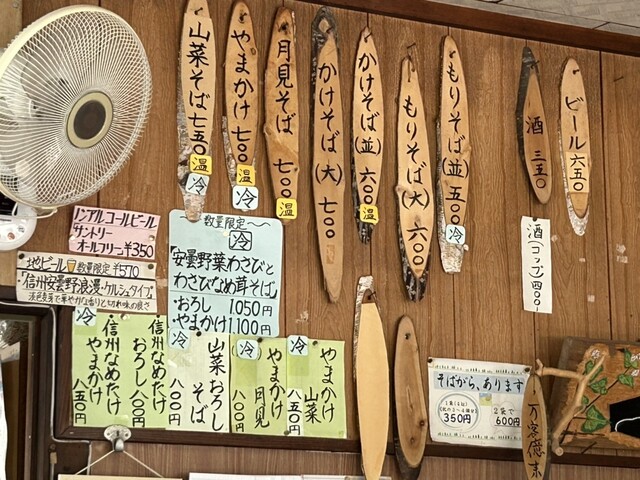 ビール 六五〇
酒 三五〇
もりそば(並) 五〇〇
冷
もりそば(大) 六〇〇
かけそば(並) 六〇〇
温
かけそば(大) 七〇〇
月見そば 七〇〇
温
やまかけ 七〇〇
温
冷
山菜そば 七五〇
温
冷
酒(コップ)四00
ノンアルコールビール
サントリー
オールフリー ¥350
地ビール 数量限定 ¥570
「信州安曇野浪漫・ケルシュタイプ」
〜数量限定〜
冷
「安曇野葉わさびと
わさびなめ茸そば」
・おろし 1.050円
・やまかけ 1.100円
冷
信州なめたけ
おろし 八〇〇円
信州なめたけ
やまかけ 八五〇円
冷
山菜おろし
そば
八〇〇円
冷
やまかけ
月見
八〇〇円
冷
やまかけ
山菜
八五〇円
そばがら、あります
350円
2袋で
600円